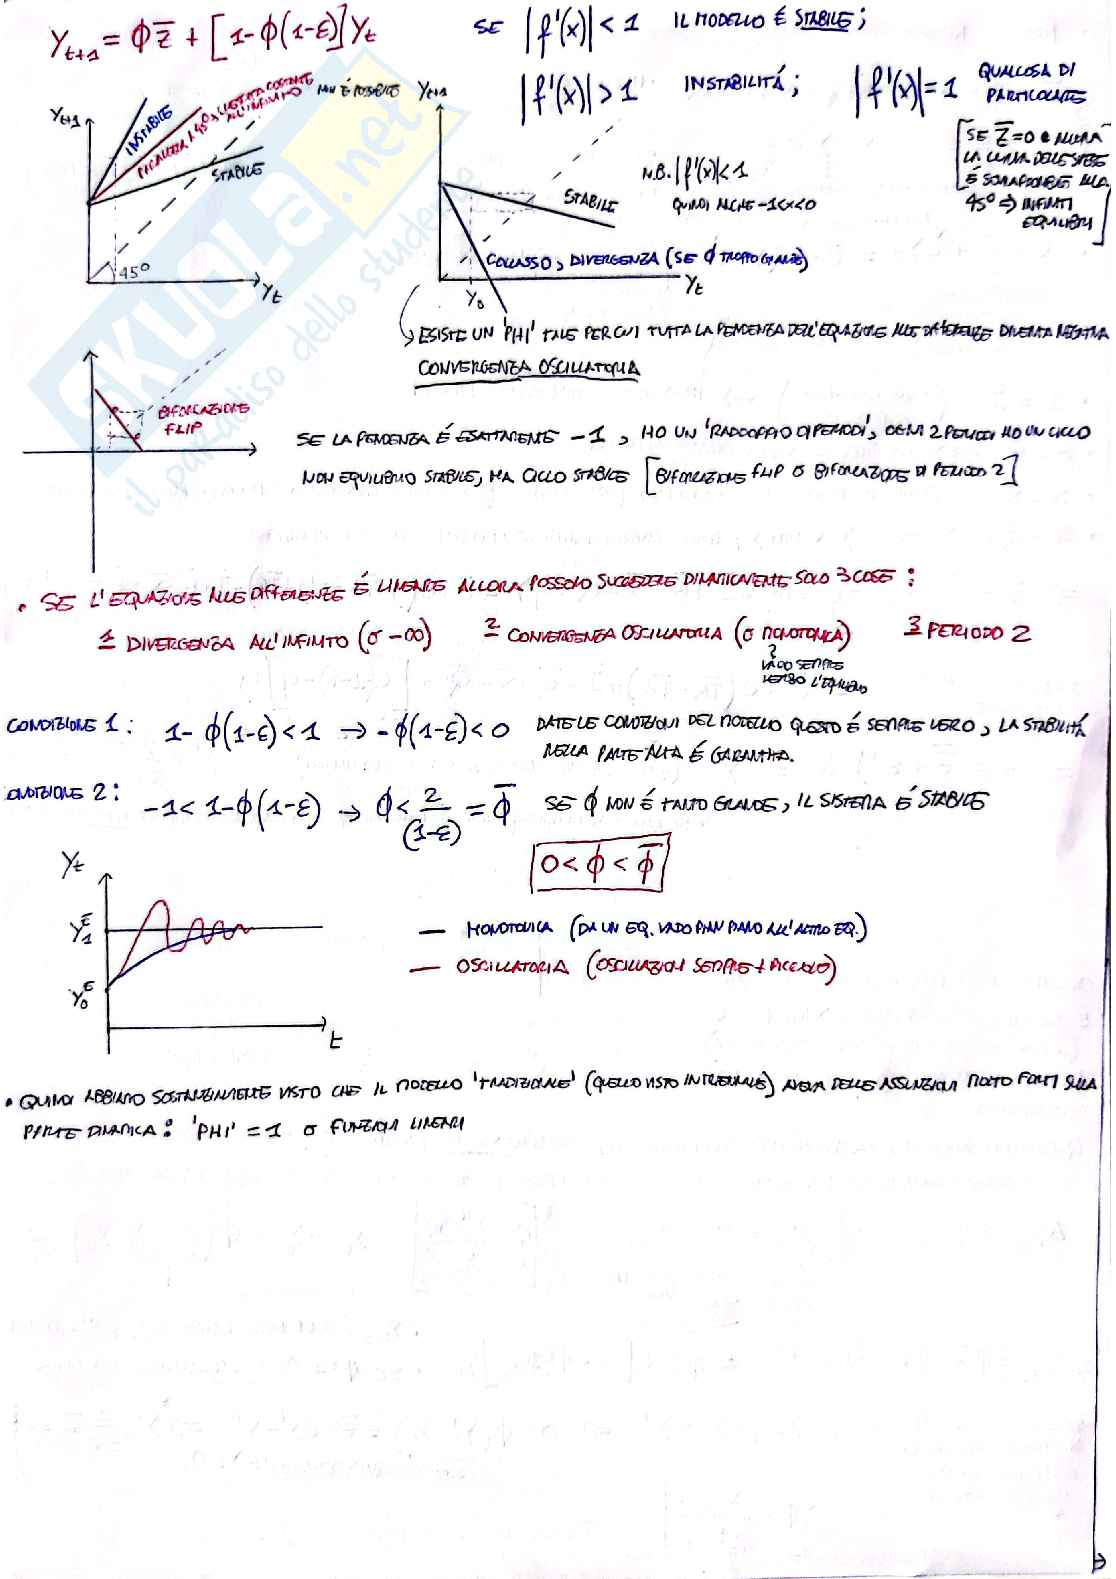 Yt+1 = Φ z̄ + [1-Φ(1-ε)] Yt
SE |f'(x)| < 1 IL MODELLO É STABILE;
|f'(x)| > 1 INSTABILITÁ; |f'(x)| = 1 QUALCOSA DI PARTICOLARE
[SE z̄=0 E ALLORA
LA CURVA DELLE SPESE
É SOVRAPPONIBILE ALLA
45° ⇒ INFINITI
EQUILIBRI]
Yt+1
INSTABILE
PARALLELA A 45°, CRESCITA COSTANTE ALL'INFINITO
NON É POSSIBILE
STABILE
45°
Yt
Yt+1
N.B. |f'(x)| < 1
QUINDI ANCHE -1<x<0
STABILE
COLLASSO, DIVERGENZA (SE Φ TROPPO GRANDE)
Y0
Yt
ESISTE UN 'PHI' TALE PER CUI TUTTA LA PENDENZA DELL'EQUAZIONE ALLE DIFFERENZE DIVENTA NEGATIVA
CONVERGENZA OSCILLATORIA
BIFORCAZIONE
FLIP
SE LA PENDENZA É ESATTAMENTE -1, HO UN 'RADDOPPIO DI PERIODI', OGNI 2 PERIODI HO UN CICLO
NON EQUILIBRIO STABILE, MA CICLO STABILE [BIFORCAZIONE FLIP O BIFORCAZIONE DI PERIODO 2]
• SE L'EQUAZIONE ALLE DIFFERENZE É LINEARE ALLORA POSSONO SUCCEDERE DINAMICAMENTE SOLO 3 COSE:
1 DIVERGENZA ALL'INFINITO (O -∞) 2 CONVERGENZA OSCILLATORIA (O MONOTONICA) 3 PERIODO 2
VADO SEMPRE
VERSO L'EQUILIBRIO
CONDIZIONE 1: 1-Φ(1-ε)<1 → -Φ(1-ε)<0 DATE LE CONDIZIONI DEL MODELLO QUESTO É SEMPRE VERO, LA STABILITÁ
NELLA PARTE ALTA É GARANTITA.
CONDIZIONE 2: -1<1-Φ(1-ε) → Φ< 2/(1-ε) = Φ̄ SE Φ NON É TANTO GRANDE, IL SISTEMA É STABILE
0<Φ<Φ̄
Yt
Y1^E
Y0^E
t
— MONOTONICA (DA UN EQ. VADO PIAN PIANO ALL'ALTRO EQ.)
— OSCILLATORIA (OSCILLAZIONI SEMPRE + PICCOLE)
• QUINDI ABBIAMO SOSTANZIALMENTE VISTO CHE IL MODELLO 'TRADIZIONALE' (QUELLO VISTO IN TRIENNALE) AVEVA DELLE ASSUNZIONI MOLTO FORTI SULLA
PARTE DINAMICA: 'PHI' = 1 O FUNZIONI LINEARI
SKUOLA.net
il paradiso dello studente